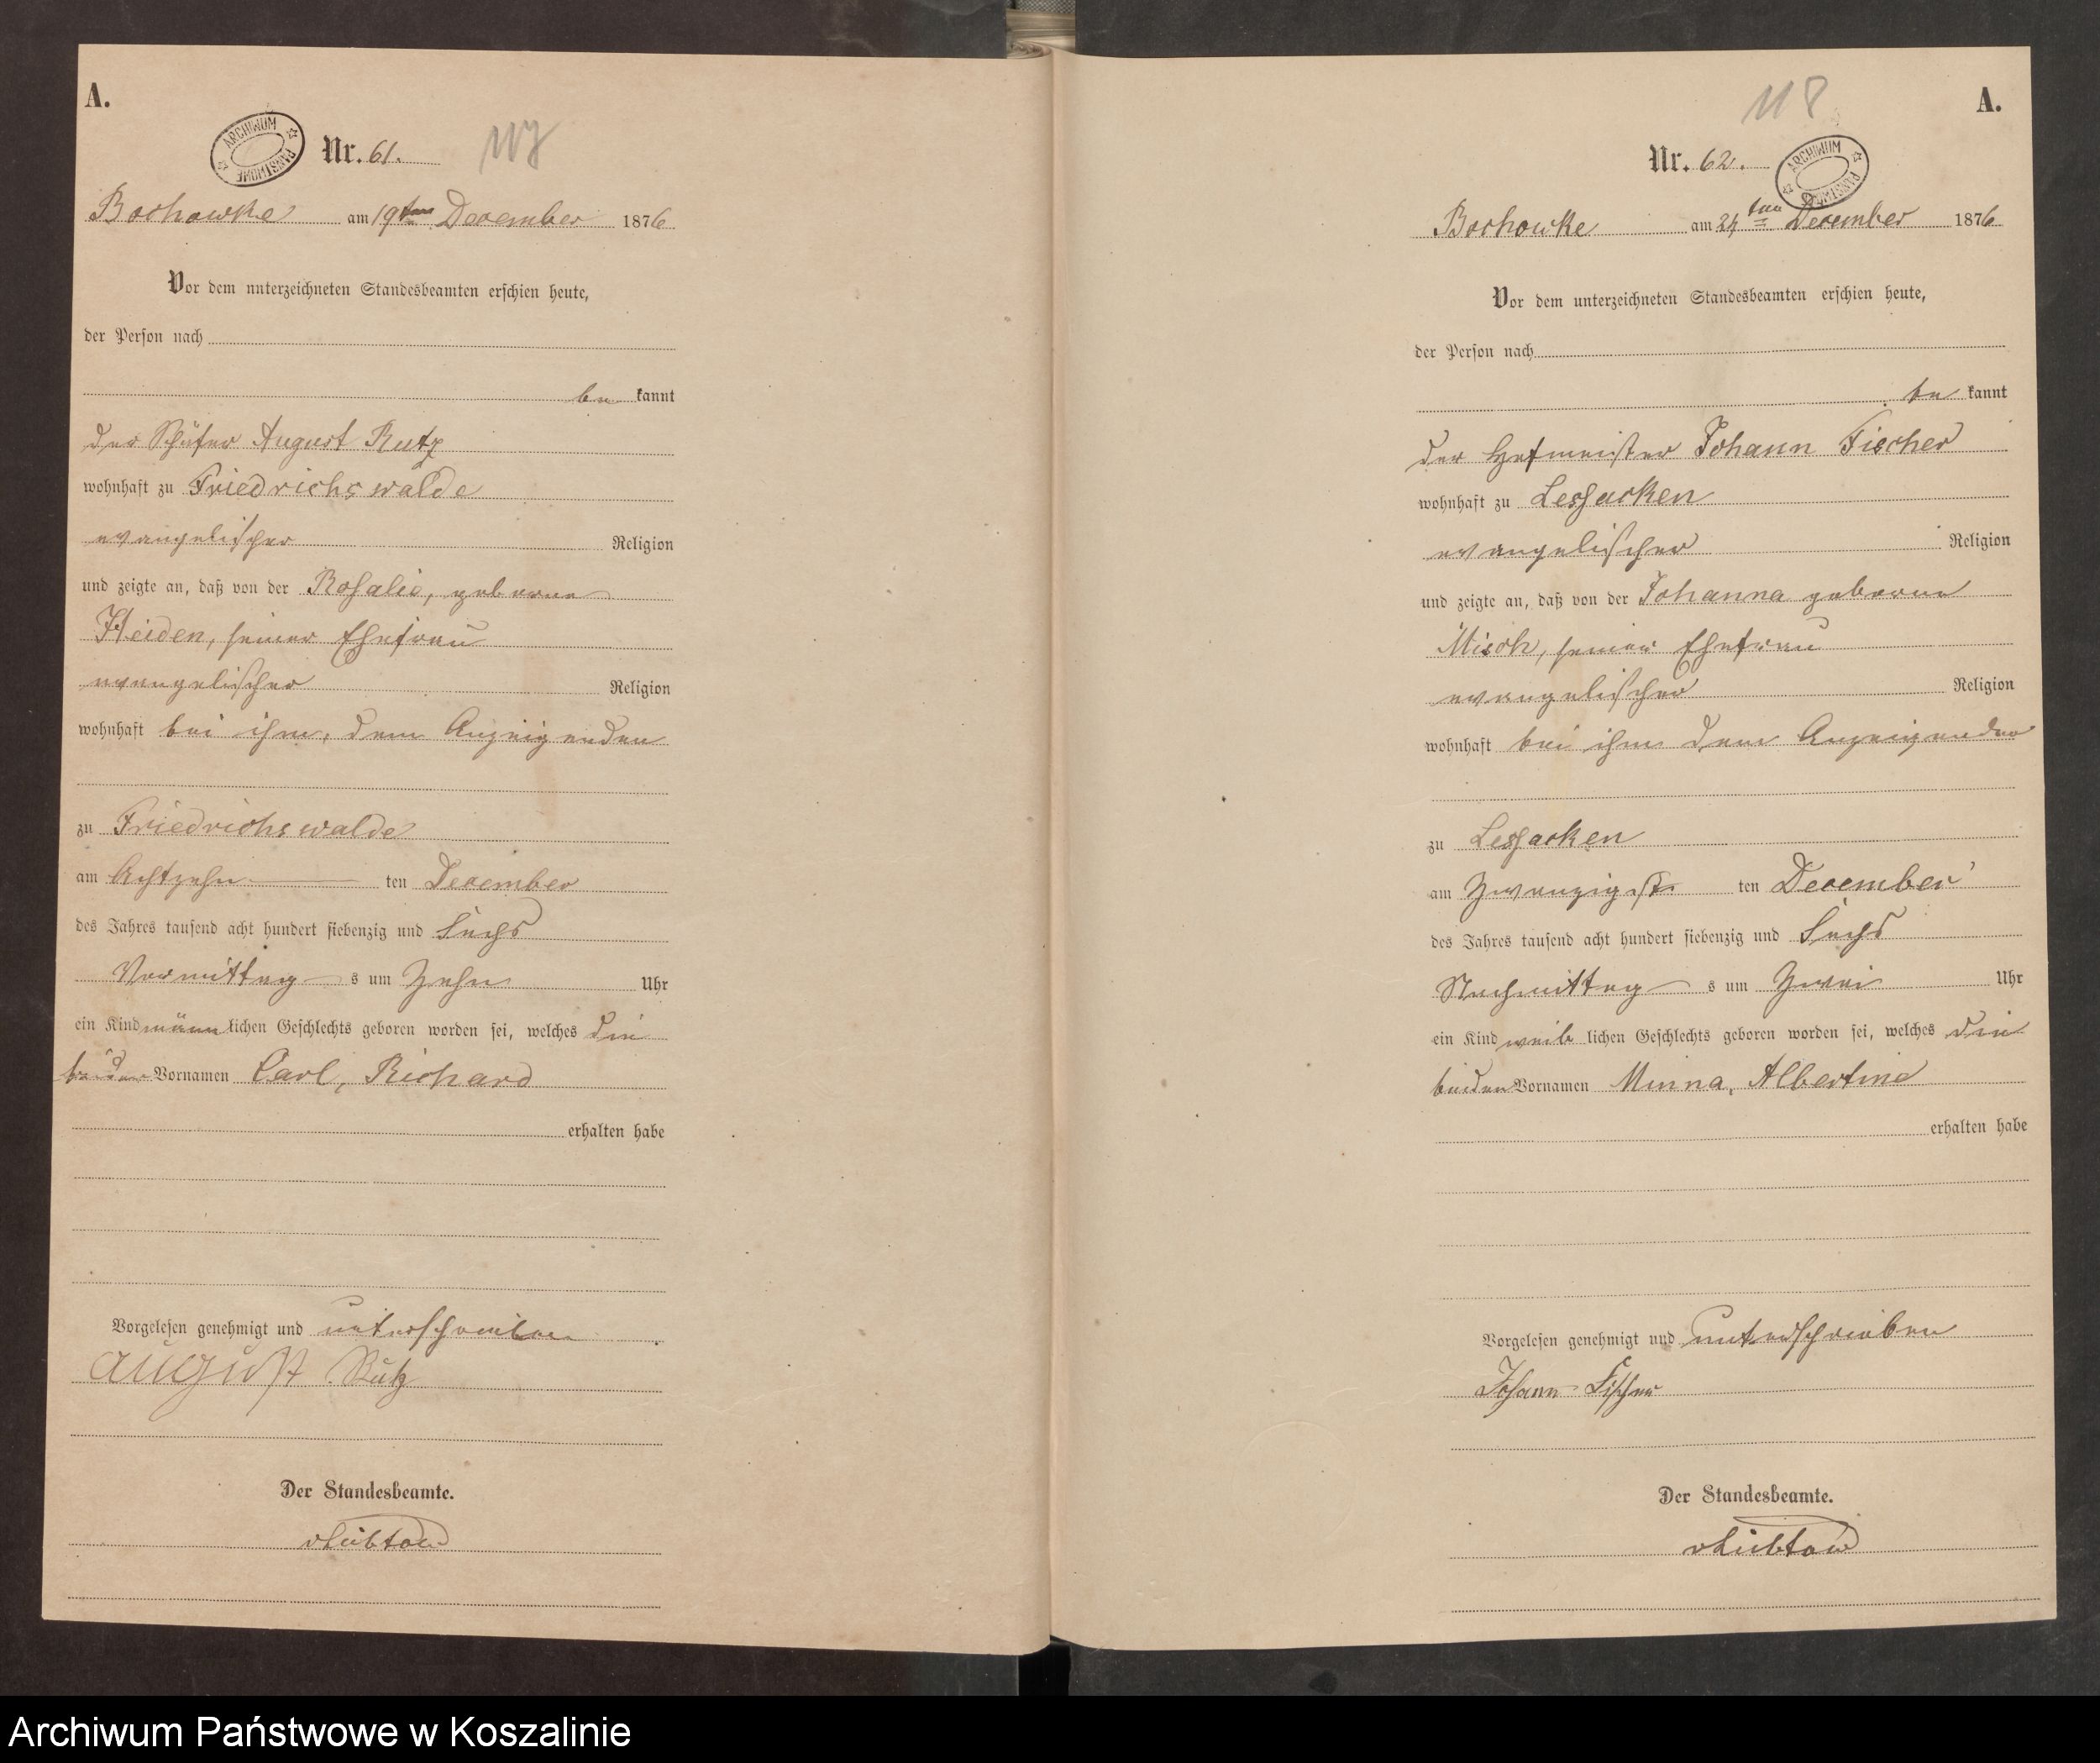 A.
ARCHIWUM PAŃSTWOWE
Nr. 61.
117
Bochowke am 19ten December 1876
Vor dem unterzeichneten Standesbeamten erschien heute,
der Person nach
be kannt
der Schäfer August Rutz
wohnhaft zu Friedrichswalde
evangelischer Religion
und zeigte an, daß von der Rosalie, geborene
Heiden, seiner Ehefrau
evangelischer Religion
wohnhaft bei ihm, dem Anzeigenden
zu Friedrichswalde
am Achtzehn ten December
des Jahres tausend acht hundert siebenzig und Sechs
Vormittag s um Zehn Uhr
ein Kind männ lichen Geschlechts geboren worden sei, welches die
beiden Vornamen Carl, Richard
erhalten habe
Vorgelesen genehmigt und unterschrieben
August Rutz
Der Standesbeamte.
vLübtow
118
A.
Nr. 62.
ARCHIWUM PAŃSTWOWE
Bochowke am 24ten December 1876
Vor dem unterzeichneten Standesbeamten erschien heute,
der Person nach
be kannt
der Hofmeister Johann Fischer
wohnhaft zu Lessacken
evangelischer Religion
und zeigte an, daß von der Johanna geborne
Misch, seiner Ehefrau
evangelischer Religion
wohnhaft bei ihm dem Anzeigender
zu Lessacken
am Zwanzigst ten December
des Jahres tausend acht hundert siebenzig und Sechs
Nachmittag s um Zwei Uhr
ein Kind weib lichen Geschlechts geboren worden sei, welches die
beiden Vornamen Minna, Albertine
erhalten habe
Vorgelesen genehmigt und unterschrieben
Johann Fischer
Der Standesbeamte.
vLübtow
Archiwum Państwowe w Koszalinie